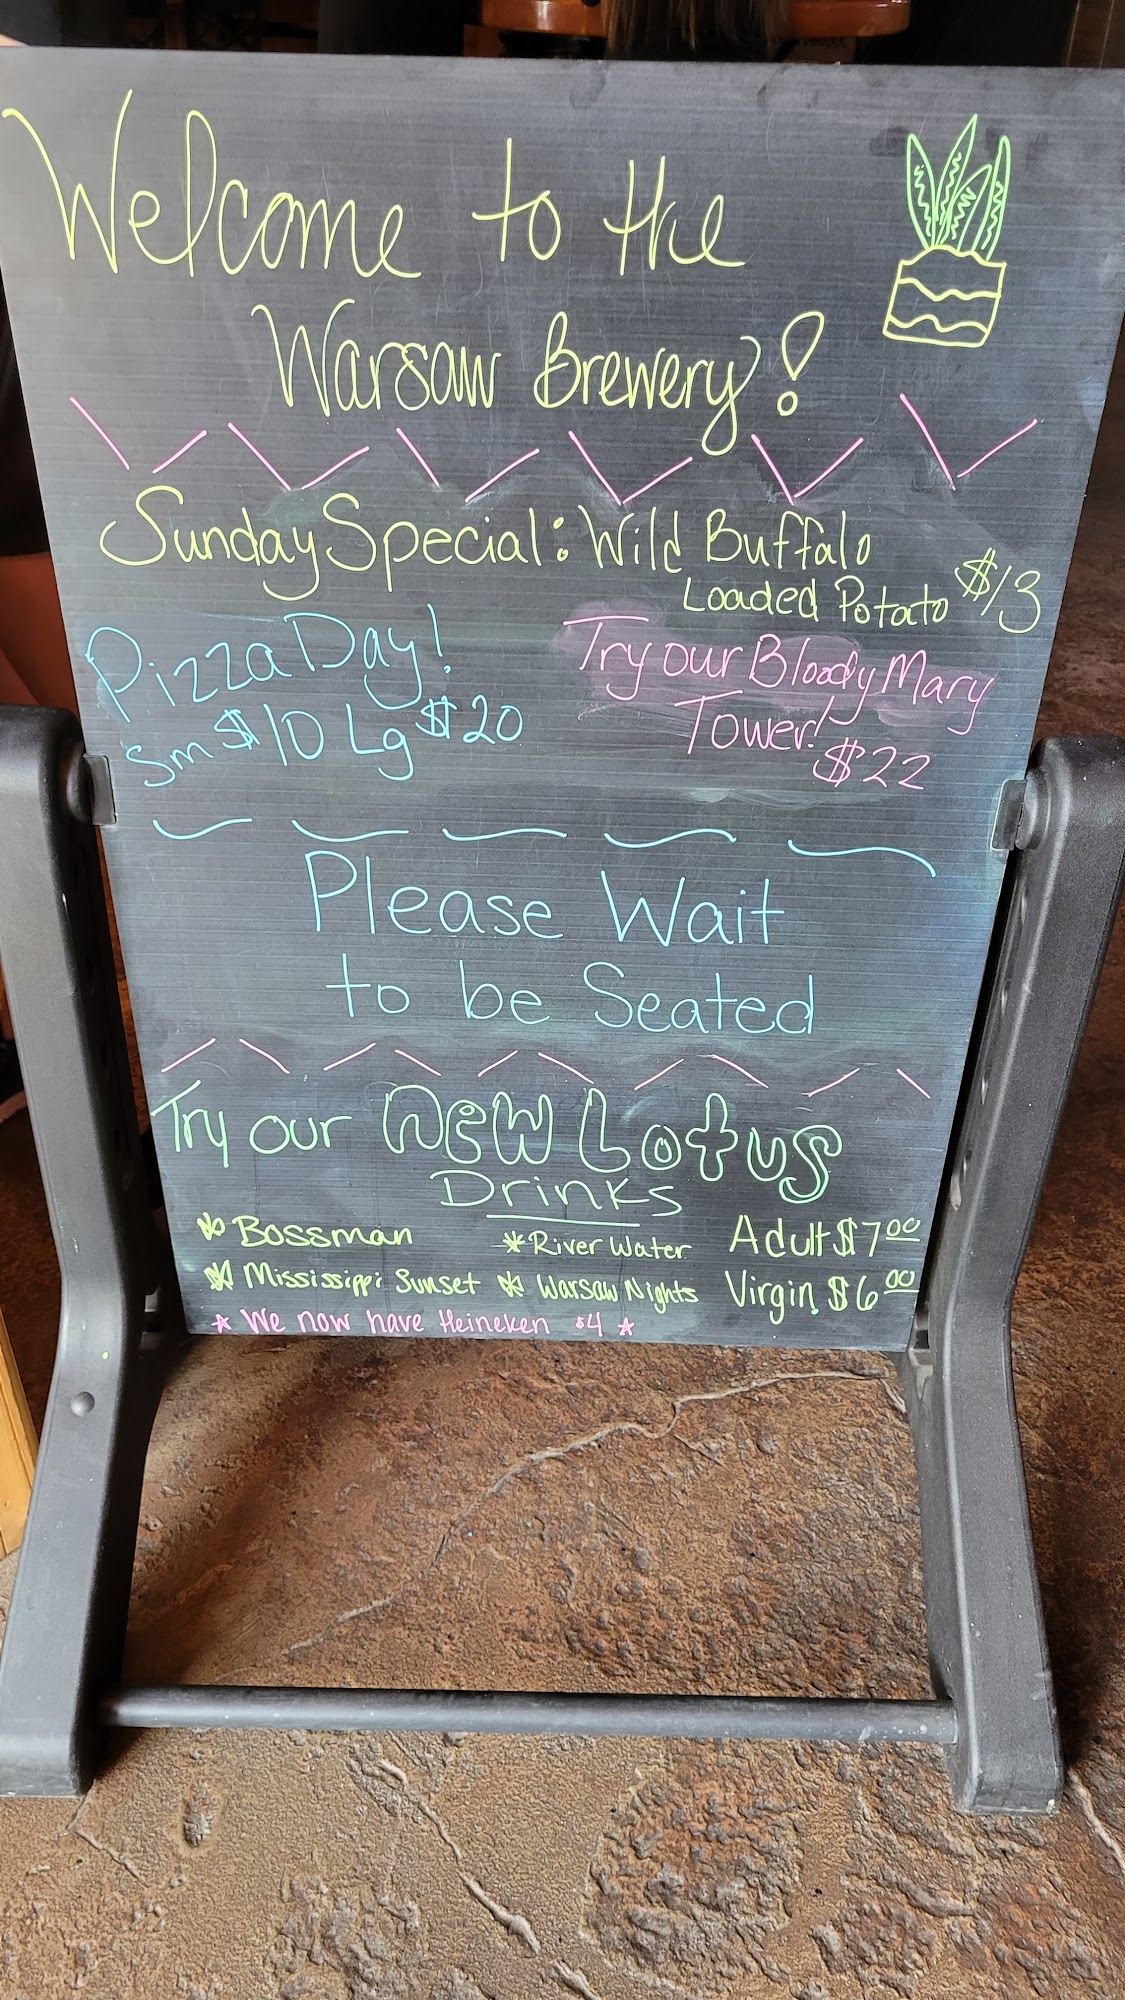 Welcome to the
Warsaw Brewery!
Sunday Special: Wild Buffalo
Loaded Potato $13
Pizza Day!
Sm $10 Lg $20
Try our Bloody Mary
Tower!
$22
Please Wait
to be Seated
Try our New Lotus
Drinks
* Bossman * River Water Adult $7.00
* Mississippi Sunset * Warsaw Nights Virgin $6.00
☆ We now have Heineken $4 ☆